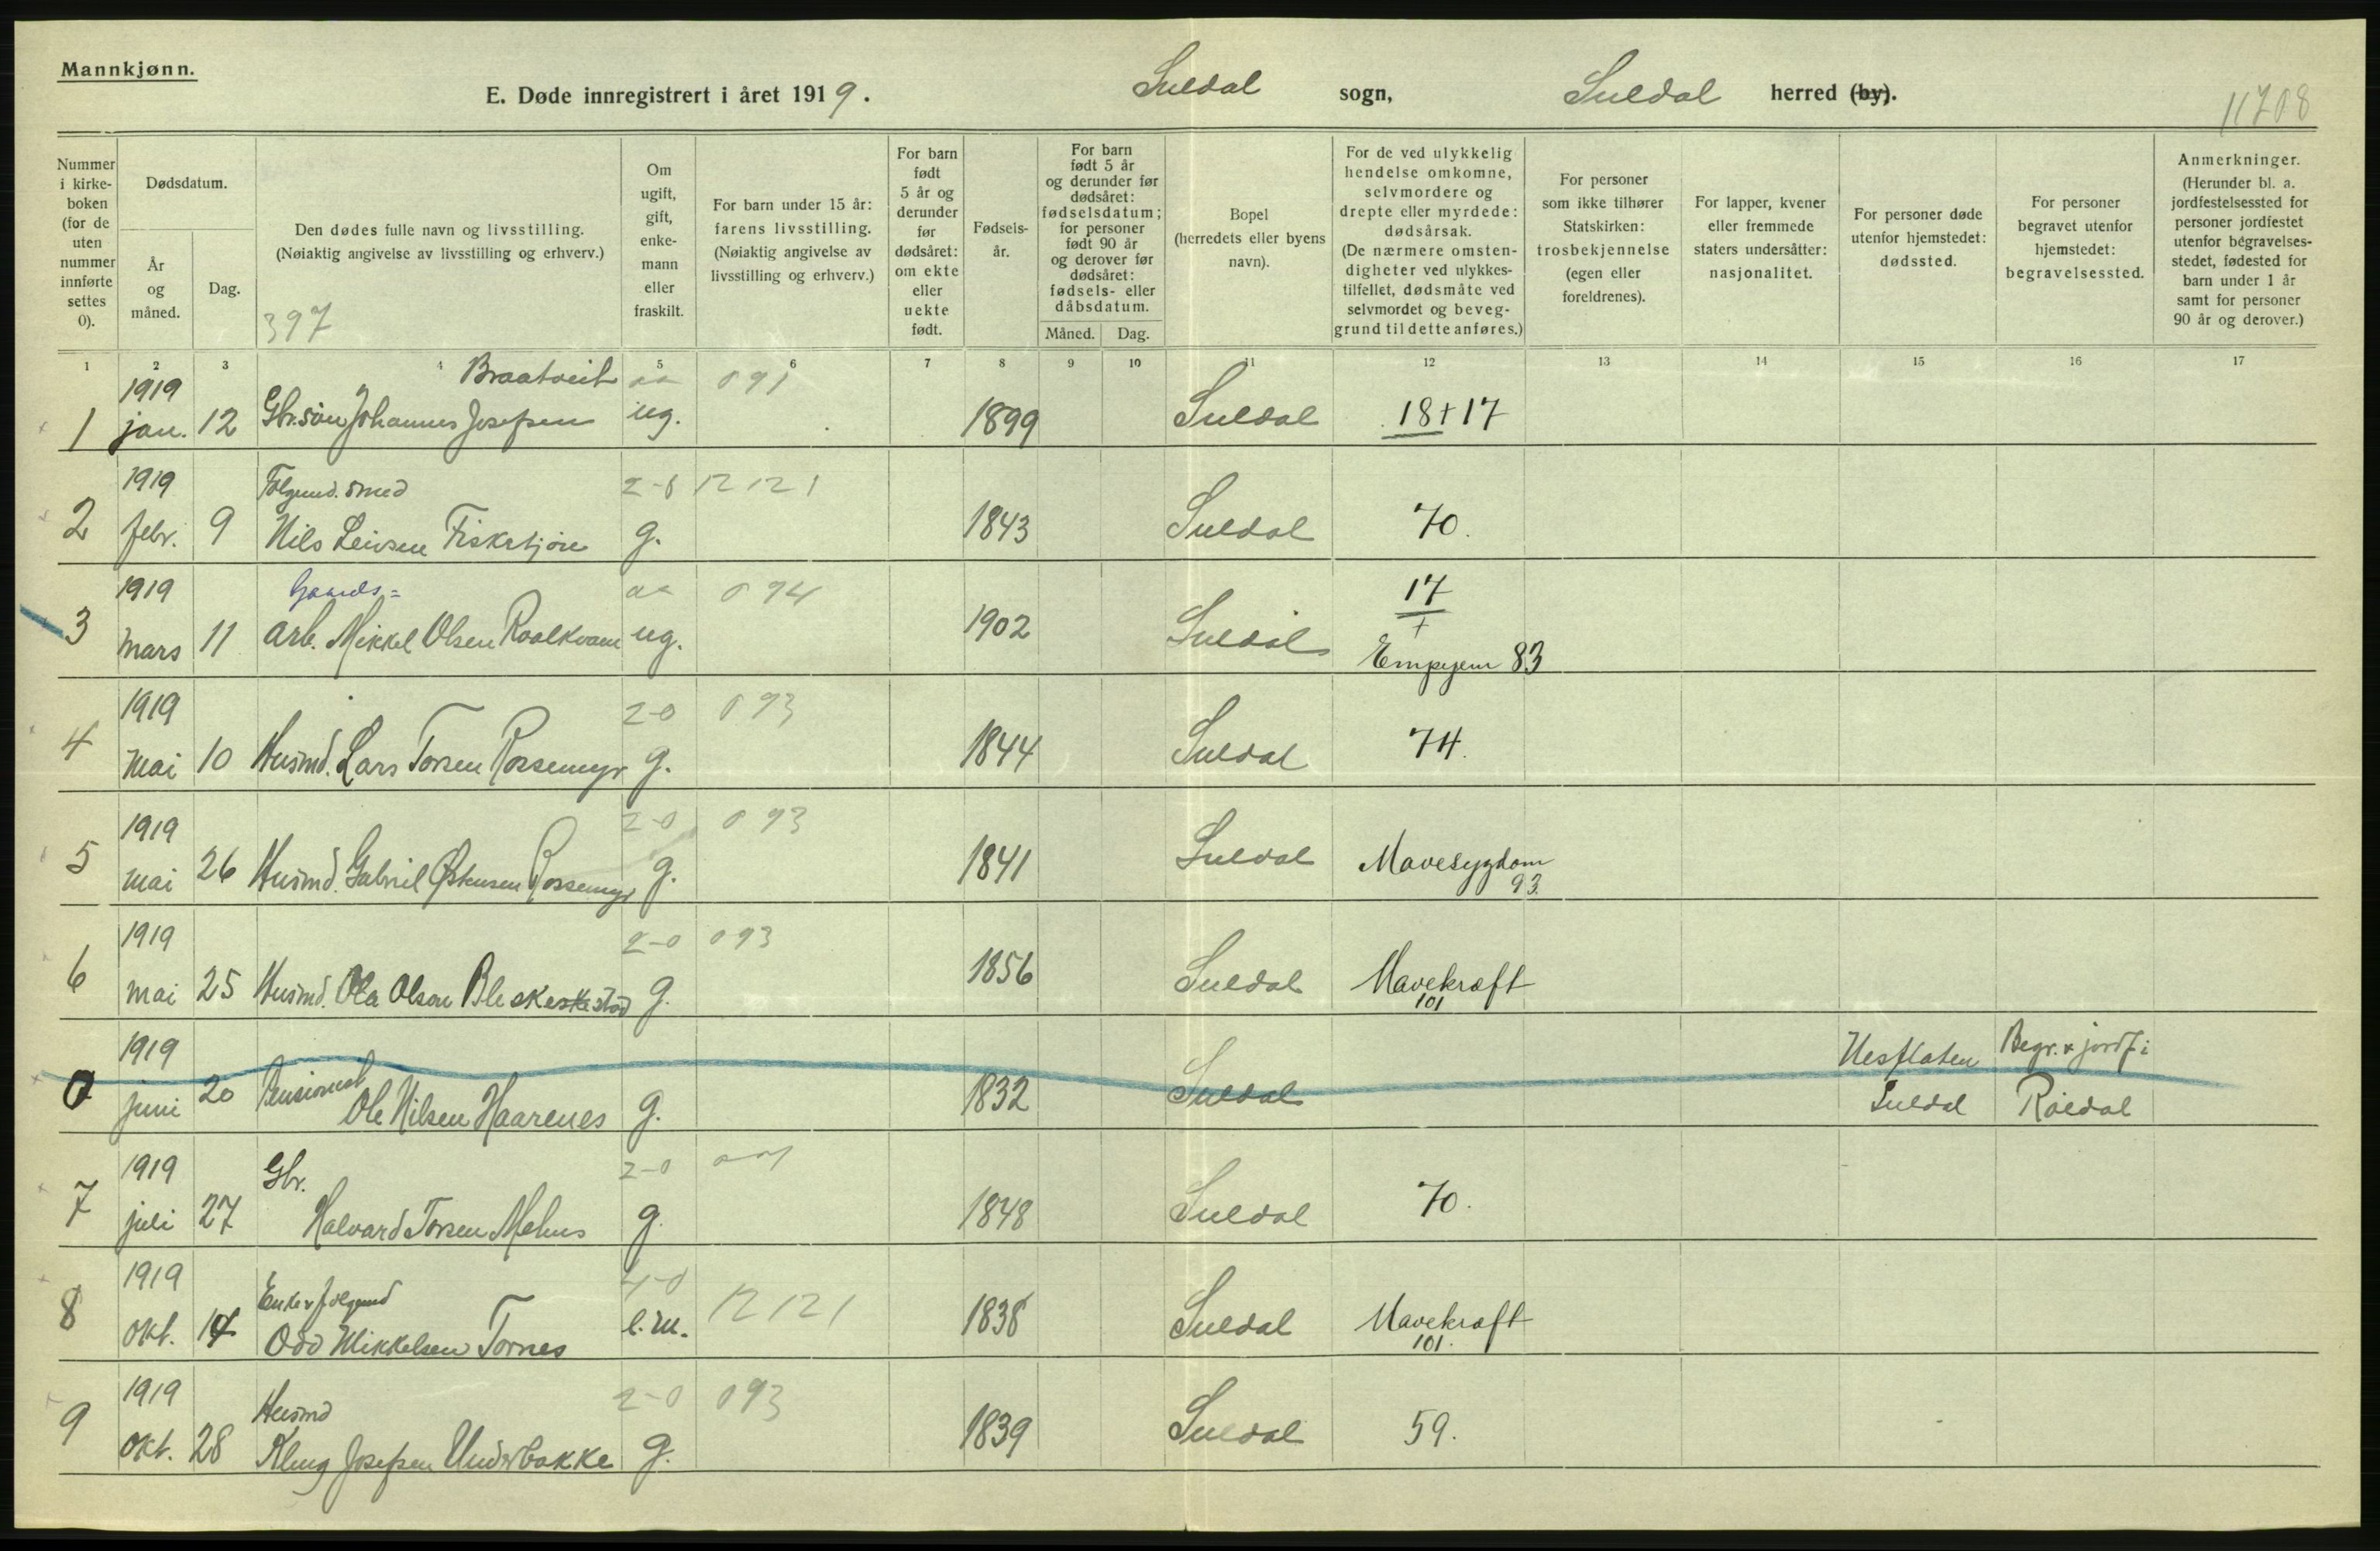 Mannkjønn.
E. Døde innregistrert i året 1919. Suldal sogn, Suldal herred (by).
11708
Nummer i kirke-boken (for de uten nummer innførte settes 0).
Dødsdatum.
År og måned.
Dag.
Den dødes fulle navn og livsstilling.
(Nøiaktig angivelse av livsstilling og erhverv.)
397
Om ugift, gift, enke-mann eller fraskilt.
For barn under 15 år: farens livsstilling.
(Nøiaktig angivelse av livsstilling og erhverv.)
For barn født 5 år og derunder før dødsåret: om ekte eller uekte født.
Fødsels-år.
For barn født 5 år og derunder før dødsåret: fødselsdatum; for personer født 90 år og derover før dødsåret: fødsels- eller dåbsdatum.
Måned. Dag.
Bopel (herredets eller byens navn).
For de ved ulykkelig hendelse omkomne, selvmordere og drepte eller myrdede: dødsårsak.
(De nærmere omsten-digheter ved ulykkes-tilfellet, dødsmåte ved selvmordet og beveg-grund til dette anføres.)
For personer som ikke tilhører Statskirken: trosbekjennelse (egen eller foreldrenes).
For lapper, kvener eller fremmede staters undersåtter: nasjonalitet.
For personer døde utenfor hjemstedet: dødssted.
For personer begravet utenfor hjemstedet: begravelsessted.
Anmerkninger.
(Herunder bl. a. jordfestelsessted for personer jordfestet utenfor begravelses-stedet, fødested for barn under 1 år samt for personer 90 år og derover.)
1 2 3 4 5 6 7 8 9 10 11 12 13 14 15 16 17
1919 Braatveit 091
1 jan. 12 Gbr.søn Johannes Josefsen ug. 1899 Suldal 18+17
1919 Følgemd. smed 2-0 12 121
2 febr. 9 Nils Leivsen Fiskatjøn g. 1843 Suldal 70.
1919 Gaards= 094 17
3 mars 11 arb. Mikkel Olsen Roalkvam ug. 1902 Suldal + Empyem 83
1919 2-0 093
4 mai 10 Husmd. Lars Torsen Rossemyr g. 1844 Suldal 74.
1919 2-0 093
5 mai 26 Husmd. Gabriel Østensen Rossemyr g. 1841 Suldal Mavesygdom 93.
1919 2-0 093
6 mai 25 Husmd. Ola Olson Bleskestad g. 1856 Suldal Mavekræft 101
1919 Nesflaten Begr. & jordf. i
0 juni 20 Pensionist Ole Nilsen Haarenes g. 1832 Suldal Suldal Røldal
1919 Gbr. 2-0
7 juli 27 Halvard Torsen Mehus g. 1848 Suldal 70.
1919 Enkev følgemd 4-0 12 121
8 okt. 14 Odd Mikkelsen Tornes e.m. 1838 Suldal Mavekræft 101.
1919 Husmd 2-0 093
9 okt. 28 Kleng Josefsen Underbakke g. 1839 Suldal 59.